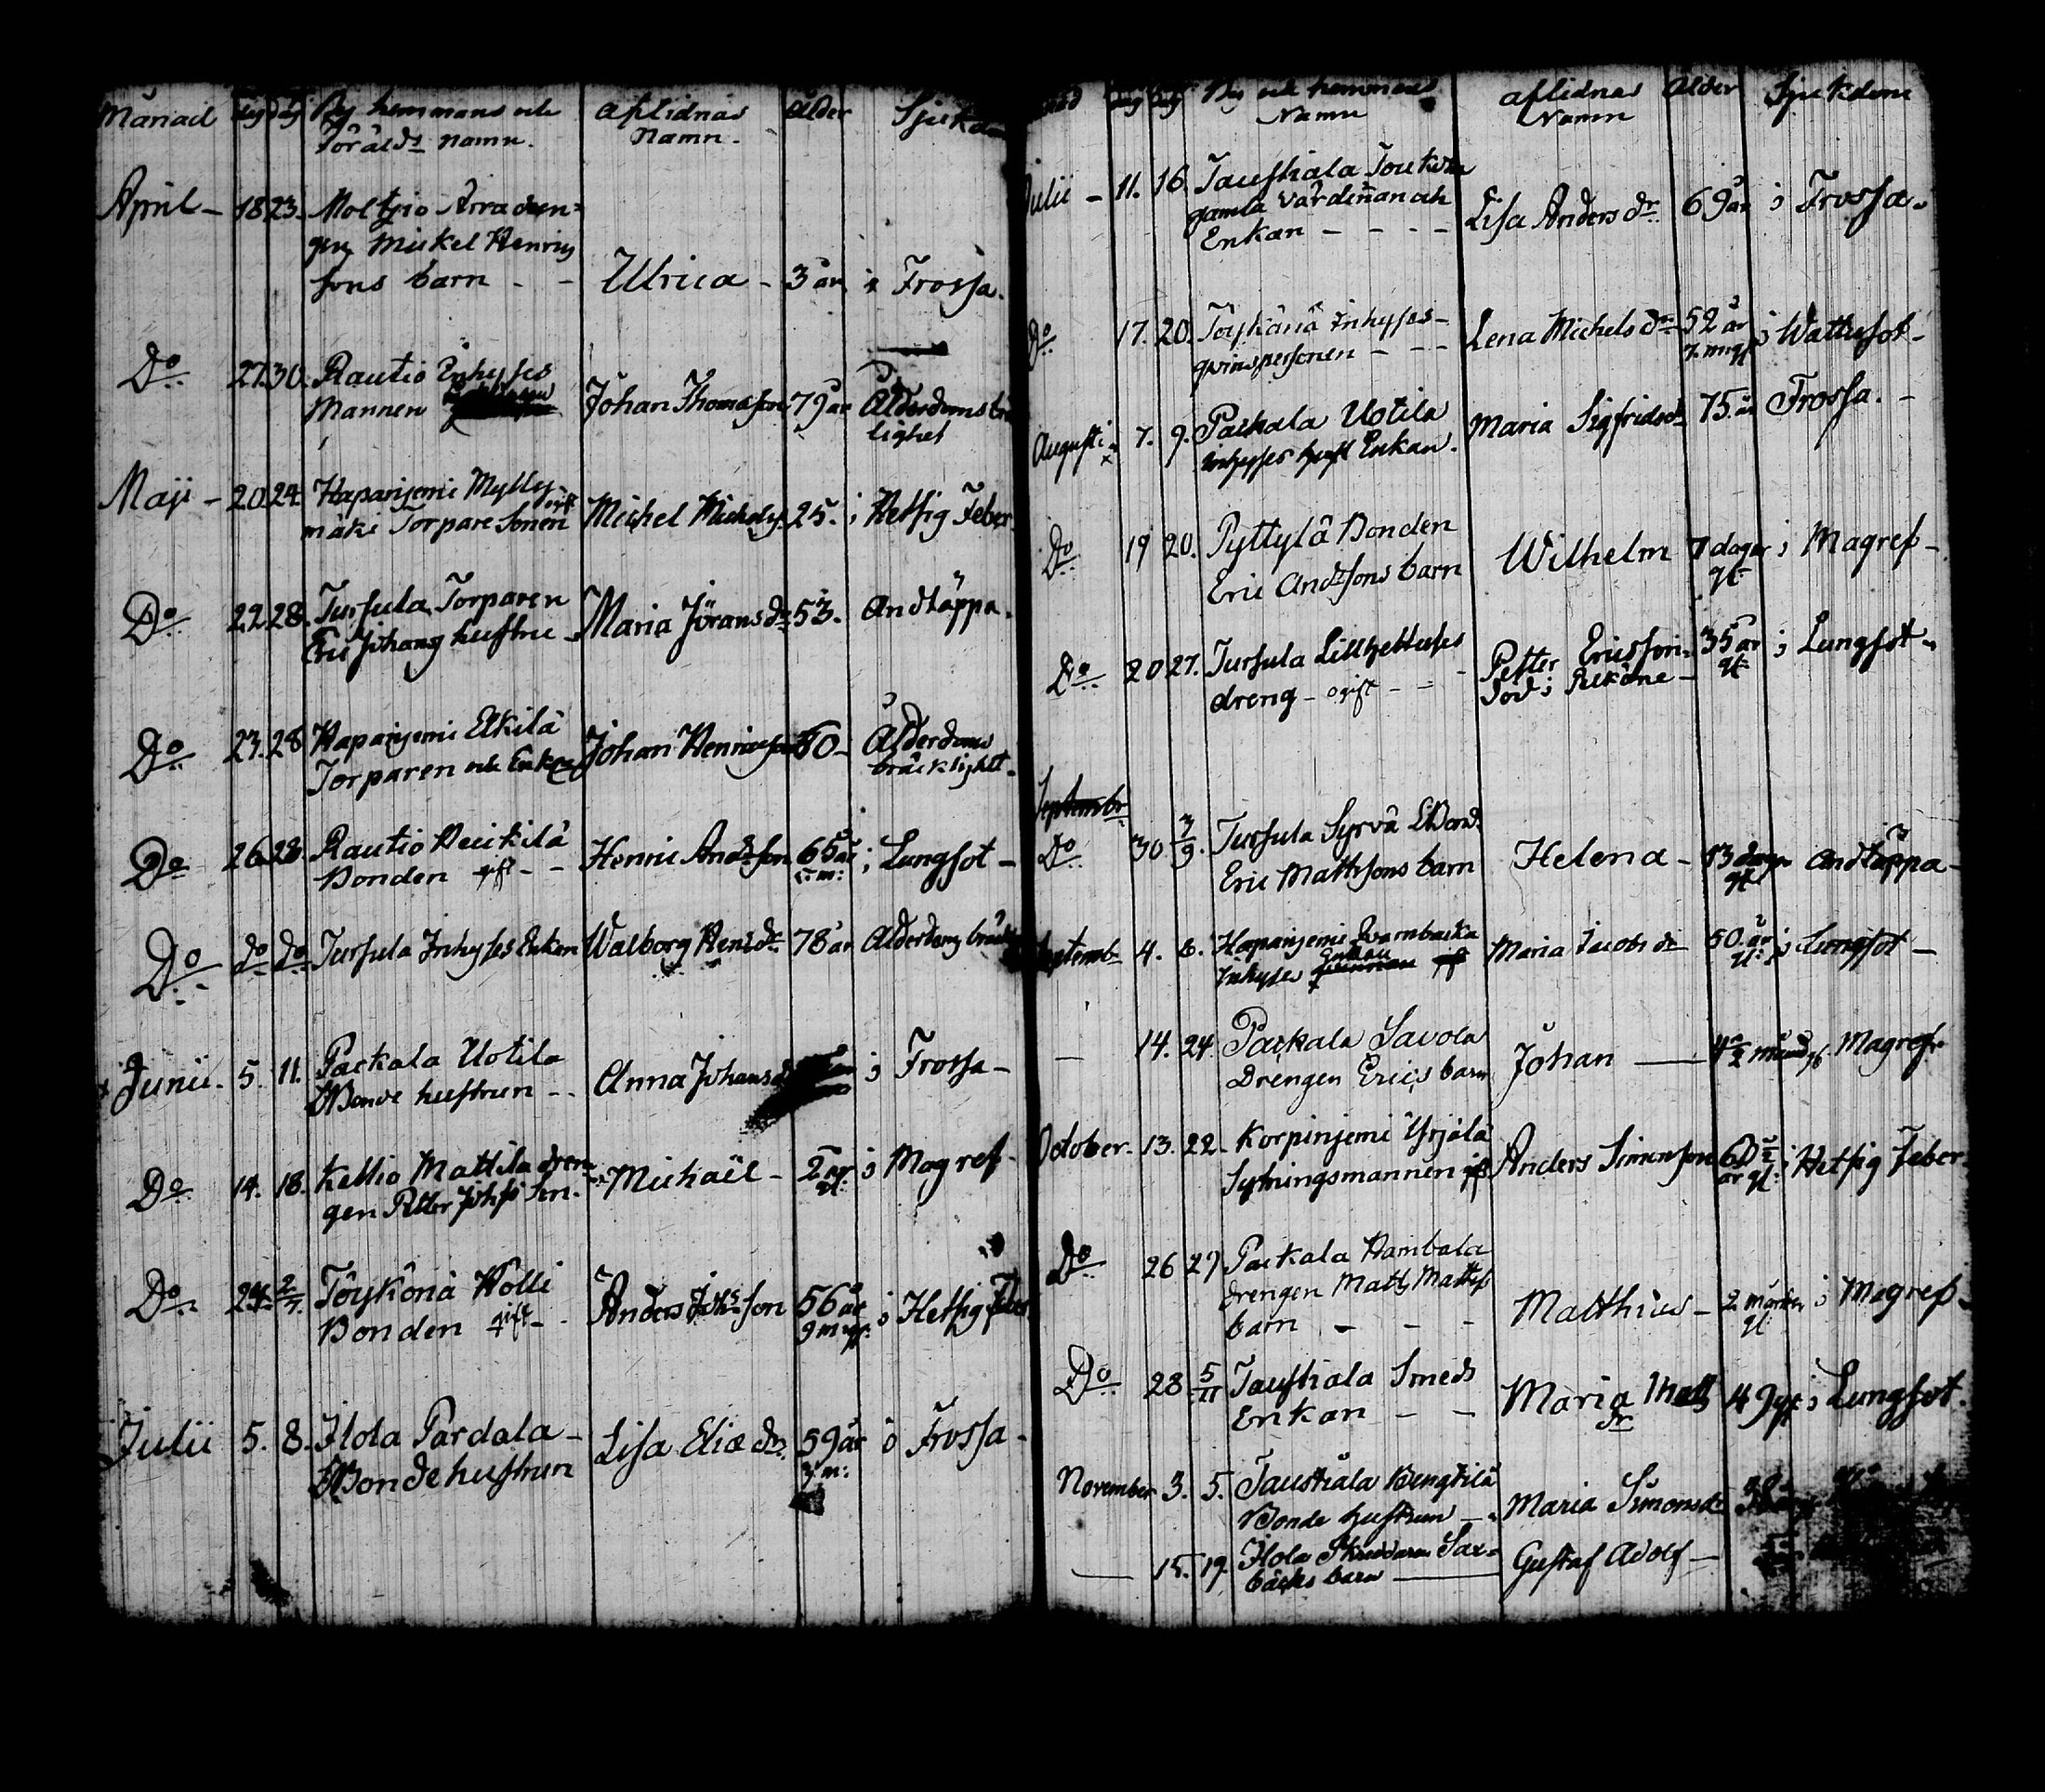 Månad dag dag By hemmans och aflidnas Ålder Sjukdom
Föräld: namn. Namn.
April - 18 23. Moltzio Arra dren=
gen Mickel Henrics
sons barn - - Ulrica - 3 år i Frossa.
Do 27. 30. Rautio Inhyses
Mannen Johan Thomasson 79 år Ålderdoms bräc
lighet
Maji - 20. 24. Haparijemi Mylly-
mäki Torpare Sonen gift Michel Michelss 25. i Hetsig Feber
Do 22. 28. Tursula Torparen
Eric Johans hustru - Maria Jörans dr 53. Andtäppa.
Do 23. 28 Haparijemi Eckilä
Torparen och Enkan Johan Henricsson 60 - Ålderdoms
bräcklighet.
Do 26. 28. Rautio Heickilä
Bonden gift - - Henric Andersson 65 år i Lungsot -
Do do do Tursula Inhyses Enkan Walborg Henr: dr 78 år Ålderdoms bräckl
Junii. 5. 11. Packala Uotila
Bonde hustrun - - Anna Johans dr i Frossa -
Do 14. 18. Kellio Mattila dren=
gen Petter Johss Son. Michaël - 2 år gl: i Magref -
Do 24. 2/7. Töykönä Wolli
Bonden gift - - Anders Johsson 56 år
9 m. gl: i Hetsig Feber
Julii 5. 8. Flola Pardala -
Bonde hustrun Lisa Eliæ dr. 59 år
7 m: i Frossa -
dag dag By och hemmans aflidnas Ålder Sjukdom
Namn Namn
Julii - 11. 16. Tauskiala
gamla värdinnan och
Enkan - - - - Lisa Anders dr. 69 år i Frossa.
Do 17. 20. Töyköinä Inhyses -
qvinspersonen - - - Lena Michels dr 52 år
7. m. gl: i Wattusot -
Augusti 7. 9. Packala Uotila
inhyses Enkan. Maria Sigfrids dr 75. år Frossa. -
Do 19 20. Pyttylä Bonden
Eric Andrsons barn Wilhelm 7 dagar gl i Magref -
Do 20 27. Tursula Lillhellusses
dreng - ogift - - - Petter Ericsson 35 år gl i Lungsot -
Do 30 3/9. Tursula Syrvä Bond.
Eric Mattssons barn Helena - 13 dagar gl Andtäppa -
Septemb 4. 8. Haparijemi Qvarnbacka
Inhyses Enkan Maria Jacobs dr 50. år gl: i Lungsot -
14. 24. Packala Savola
Drengen Erics barn Johan Månad gl. Magref
October. 13. 22. Korpinjemi Yrjälä
Sytningsmannen gift Anders Simonsson 60 år gl: i Hetsig Feber.
Do 26 29 Packala Hambala
drengen Matts Matts
barn - - - Matthias - 2 månader gl: i Magref -
Do 28 5/11 Tauskiala Smeds
Enkan - - Maria Matts
dr 49 gl i Lungsot.
November 3. 5. Tauskiala Bengtilä
Bonde hustrun - Maria Simonsdr
15. 19. Flola Skreddaren Sax=
bäcks barn Gustaf Adolf -